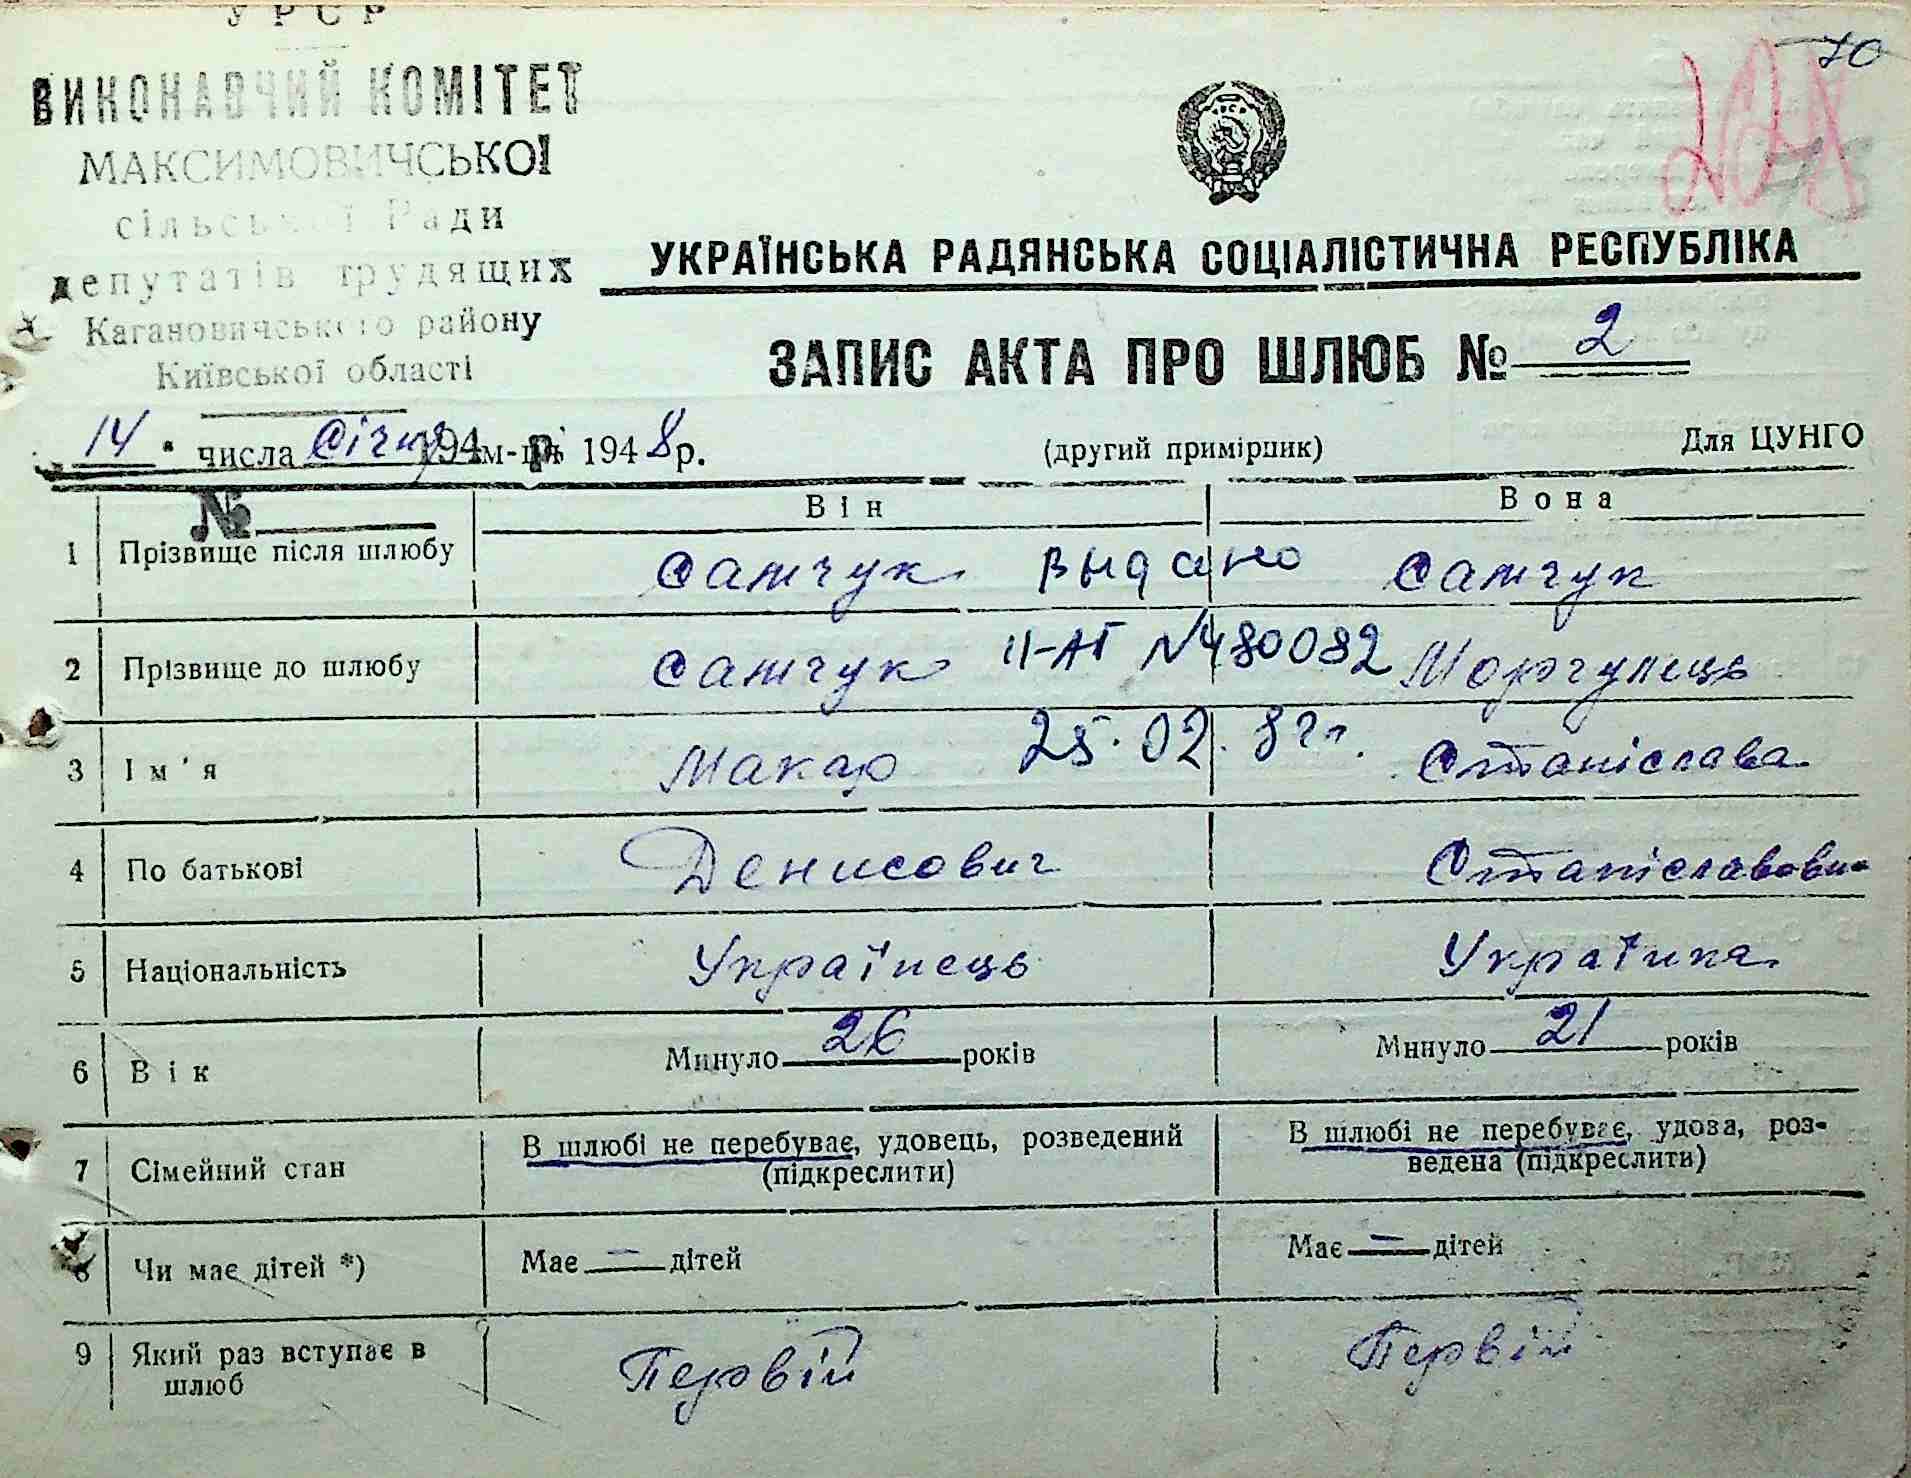 УРСР
ВИКОНАВЧИЙ КОМІТЕТ
МАКСИМОВИЧСЬКОЇ
сільської Ради
депутатів трудящих
Кагановичського району
Київської області
194 р.
№
70
УКРАЇНСЬКА РАДЯНСЬКА СОЦІАЛІСТИЧНА РЕСПУБЛІКА
ЗАПИС АКТА ПРО ШЛЮБ № 2
14 числа Січня м-ця 1948 р. (другий примірник) Для ЦУНГО
Він Вона
1 Прізвище після шлюбу Самчук Выдано Самчук
2 Прізвище до шлюбу Самчук II-АГ №480082
3 Ім'я Макар 25.02.87г. Станіслава
4 По батькові Денисович Станіславовн
5 Національність Українець Українка
6 Вік Минуло 26 років Минуло 21 років
7 Сімейний стан В шлюбі не перебуває, удовець, розведений (підкреслити) В шлюбі не перебуває, удова, роз-
ведена (підкреслити)
8 Чи має дітей *) Має — дітей Має — дітей
9 Який раз вступає в шлюб Первій Первій